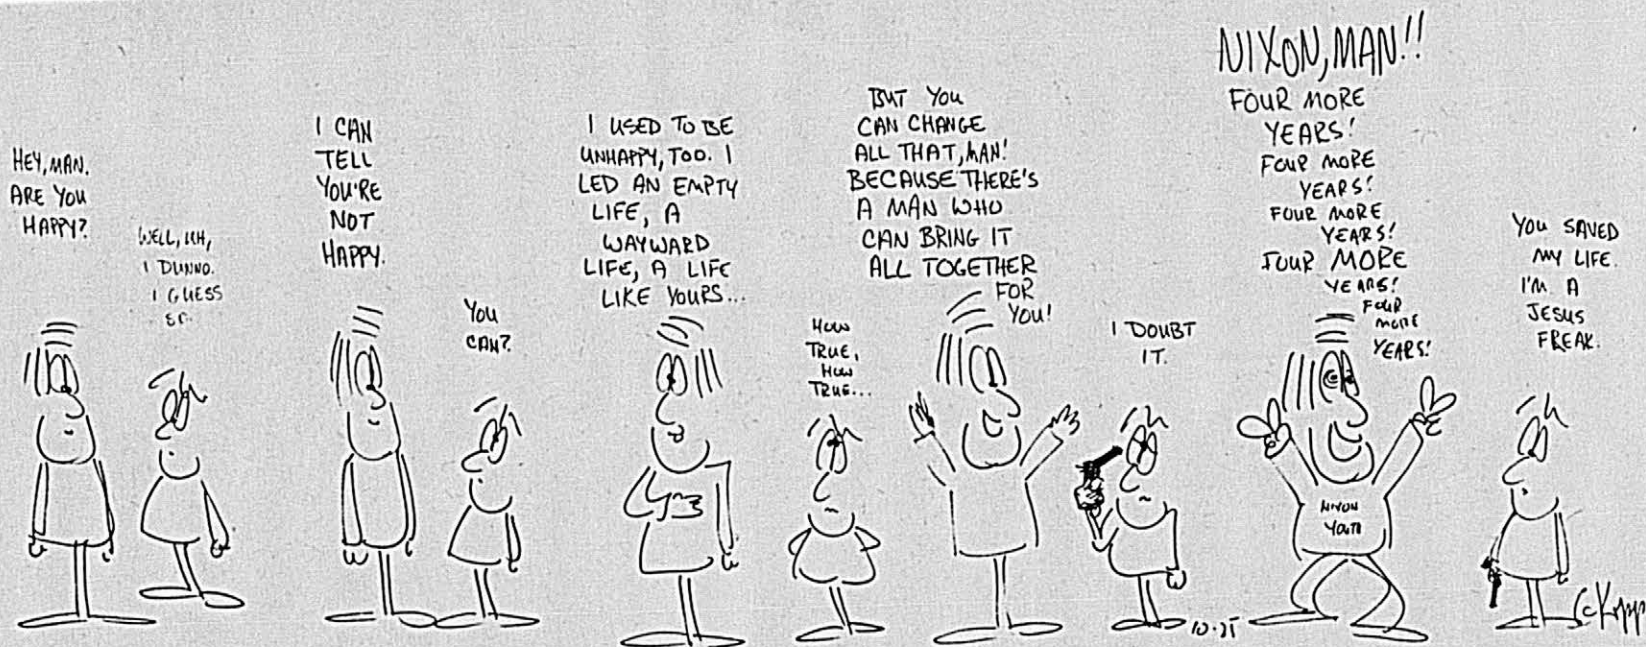 HEY, MAN.
ARE YOU
HAPPY?
WELL, UH,
I DUNNO.
I GUESS
SO.
I CAN
TELL
YOU'RE
NOT
HAPPY.
YOU
CAN?
I USED TO BE
UNHAPPY, TOO. I
LED AN EMPTY
LIFE, A
WAYWARD
LIFE, A LIFE
LIKE YOURS...
HOW
TRUE,
HOW
TRUE...
BUT YOU
CAN CHANGE
ALL THAT, MAN!
BECAUSE THERE'S
A MAN WHO
CAN BRING IT
ALL TOGETHER
FOR
YOU!
I DOUBT
IT.
NIXON, MAN!!
FOUR MORE
YEARS!
FOUR MORE
YEARS!
FOUR MORE
YEARS!
FOUR MORE
YEARS!
FOUR
MORE
YEARS!
NIXON
YOUTH
YOU SAVED
MY LIFE.
I'M A
JESUS
FREAK.